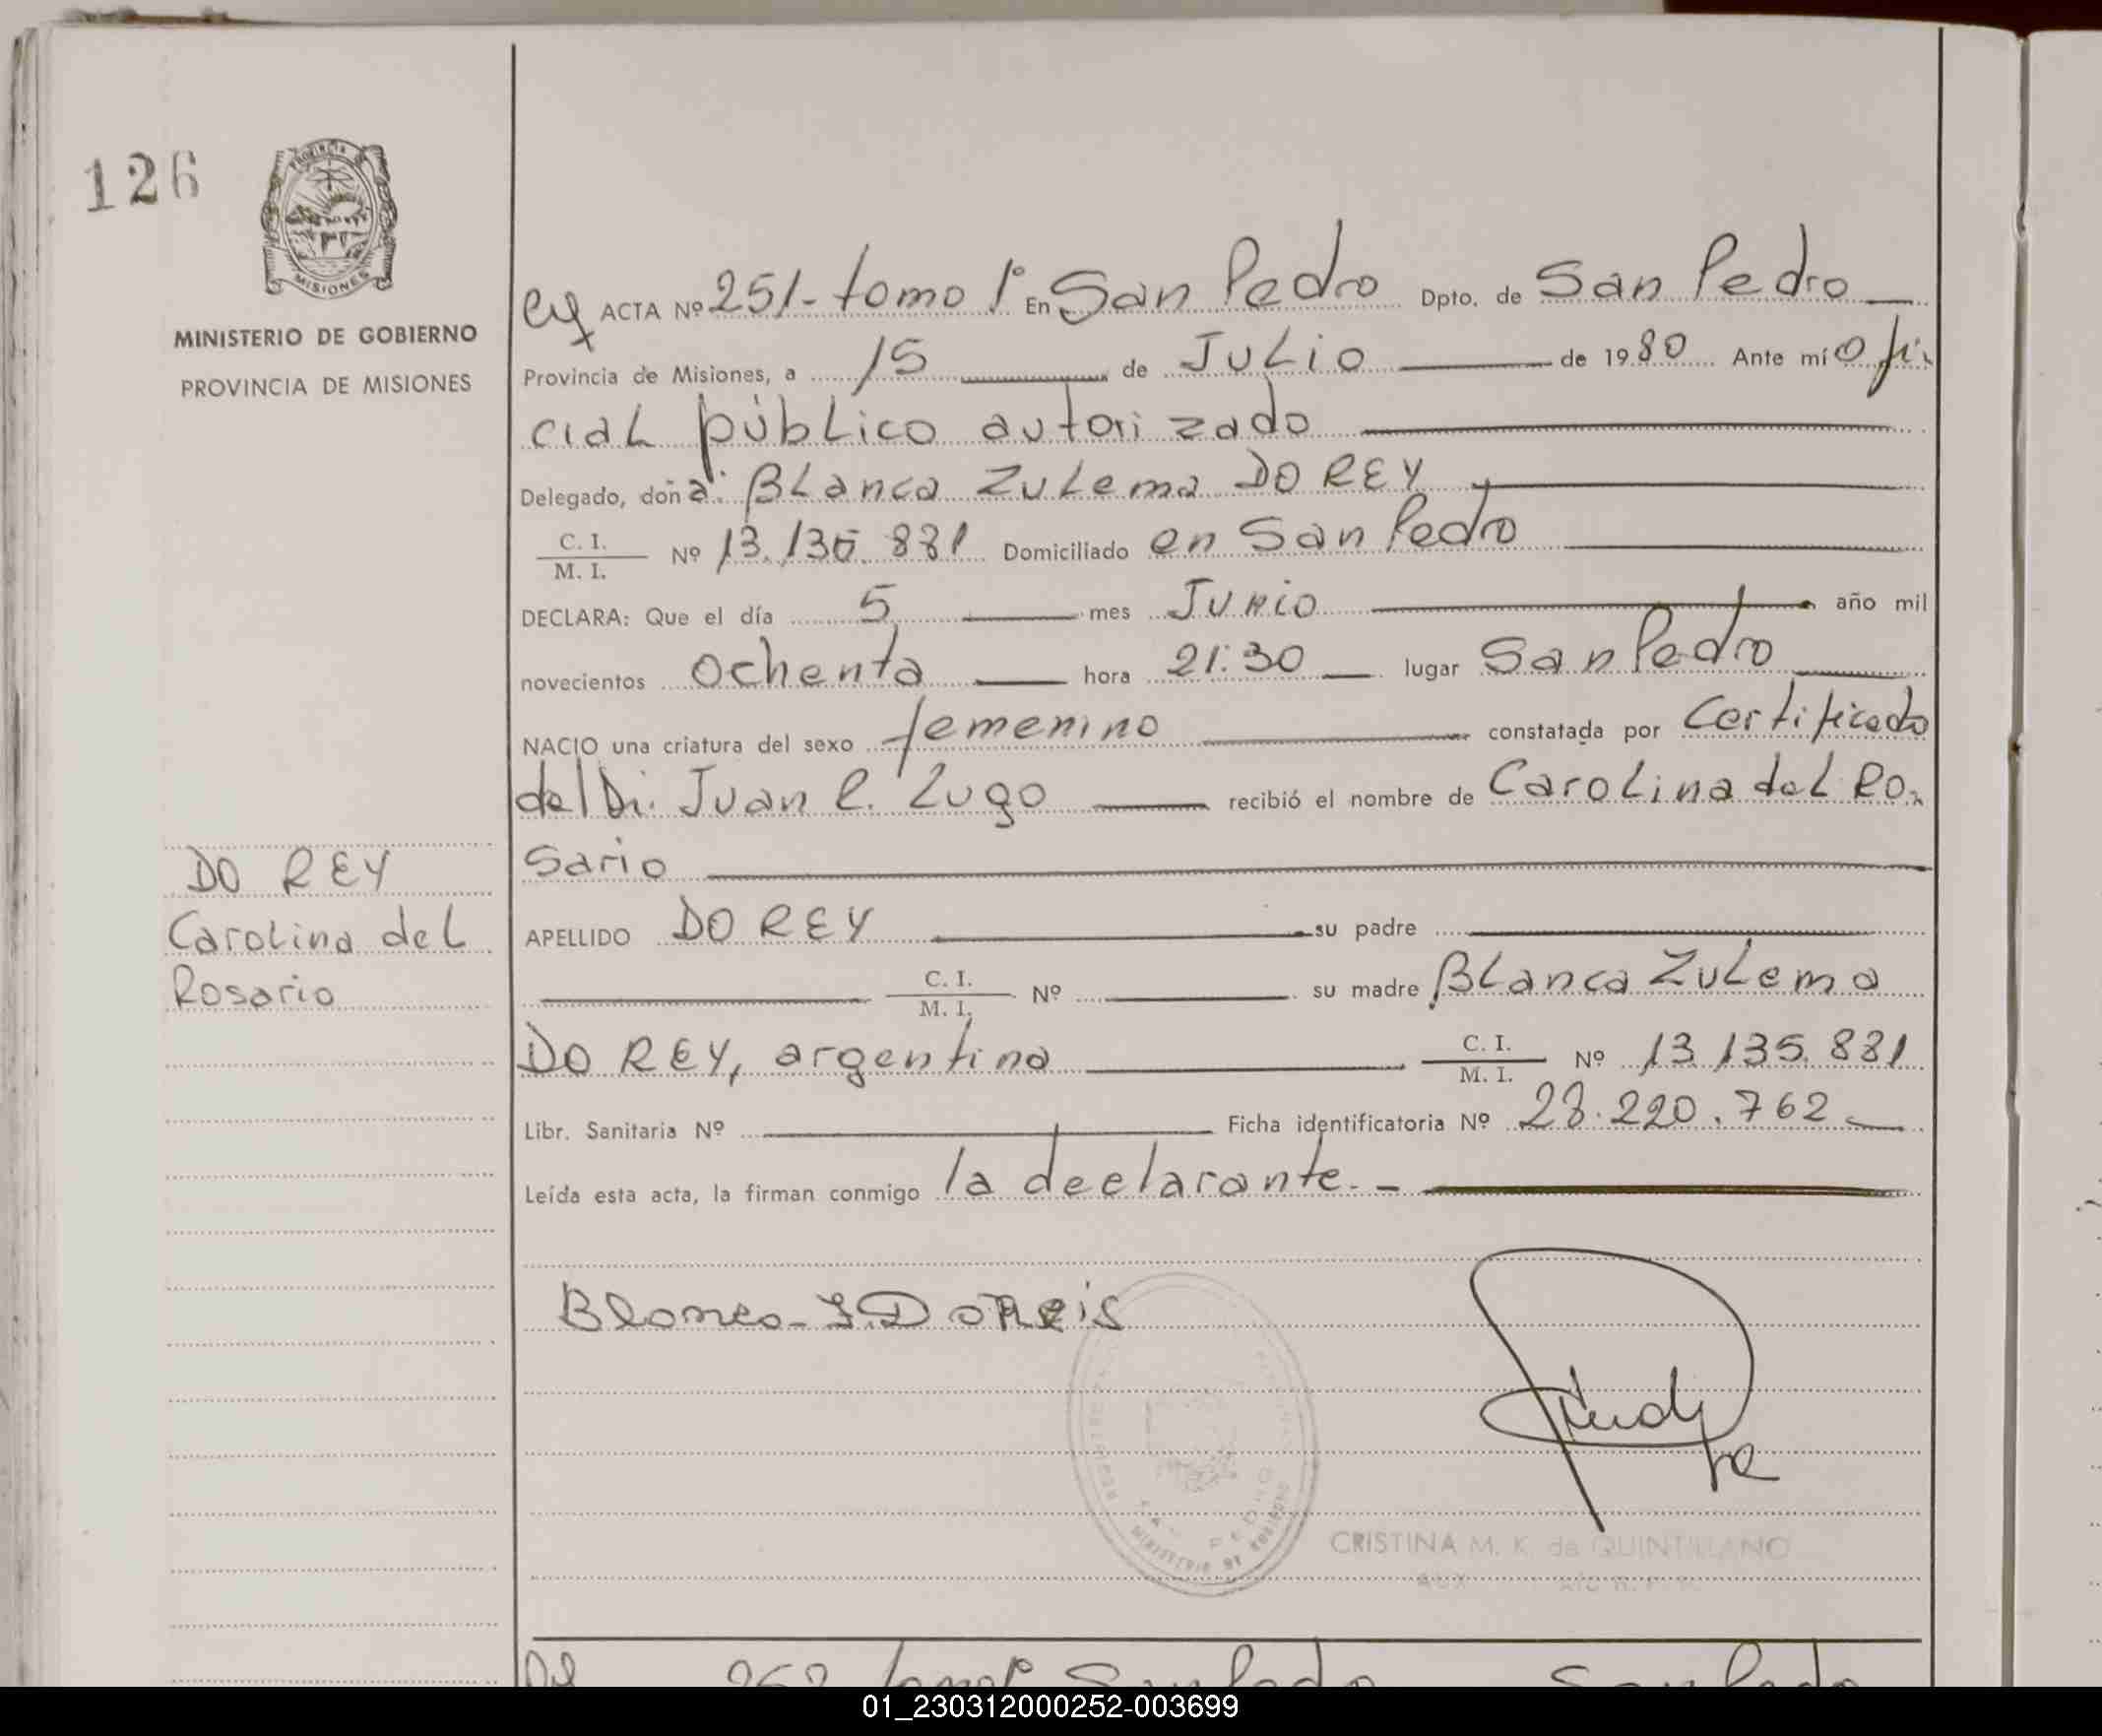 126
PROVINCIA DE
MISIONES
MINISTERIO DE GOBIERNO
PROVINCIA DE MISIONES
DO REY
Carolina del
Rosario
ACTA Nº 251- tomo 1º En San Pedro Dpto. de San Pedro
Provincia de Misiones, a 15 de Julio de 1980 Ante mí ofi-
cial público autorizado
Delegado, doña: Blanca Zulema DO REY
C. I.
M. I. Nº 13.135.881 Domiciliado en San Pedro
DECLARA: Que el día 5 mes Junio año mil
novecientos ochenta hora 21:30 lugar San Pedro
NACIO una criatura del sexo femenino constatada por Certificado
del Dr. Juan R. Lugo recibió el nombre de Carolina del Ro-
sario
APELLIDO DO REY su padre
C. I.
M. I. Nº su madre Blanca Zulema
DO REY, argentina C. I.
M. I. Nº 13.135.881
Libr. Sanitaria Nº Ficha identificatoria Nº 28.220.762
Leída esta acta, la firman conmigo la declarante.-
Blanca Z. Do Reis
SAN PEDRO
MINISTERIO DE GOBIERNO
CRISTINA M. K. de QUINTILLANO
San Pedro San Pedro
01_230312000252-003699